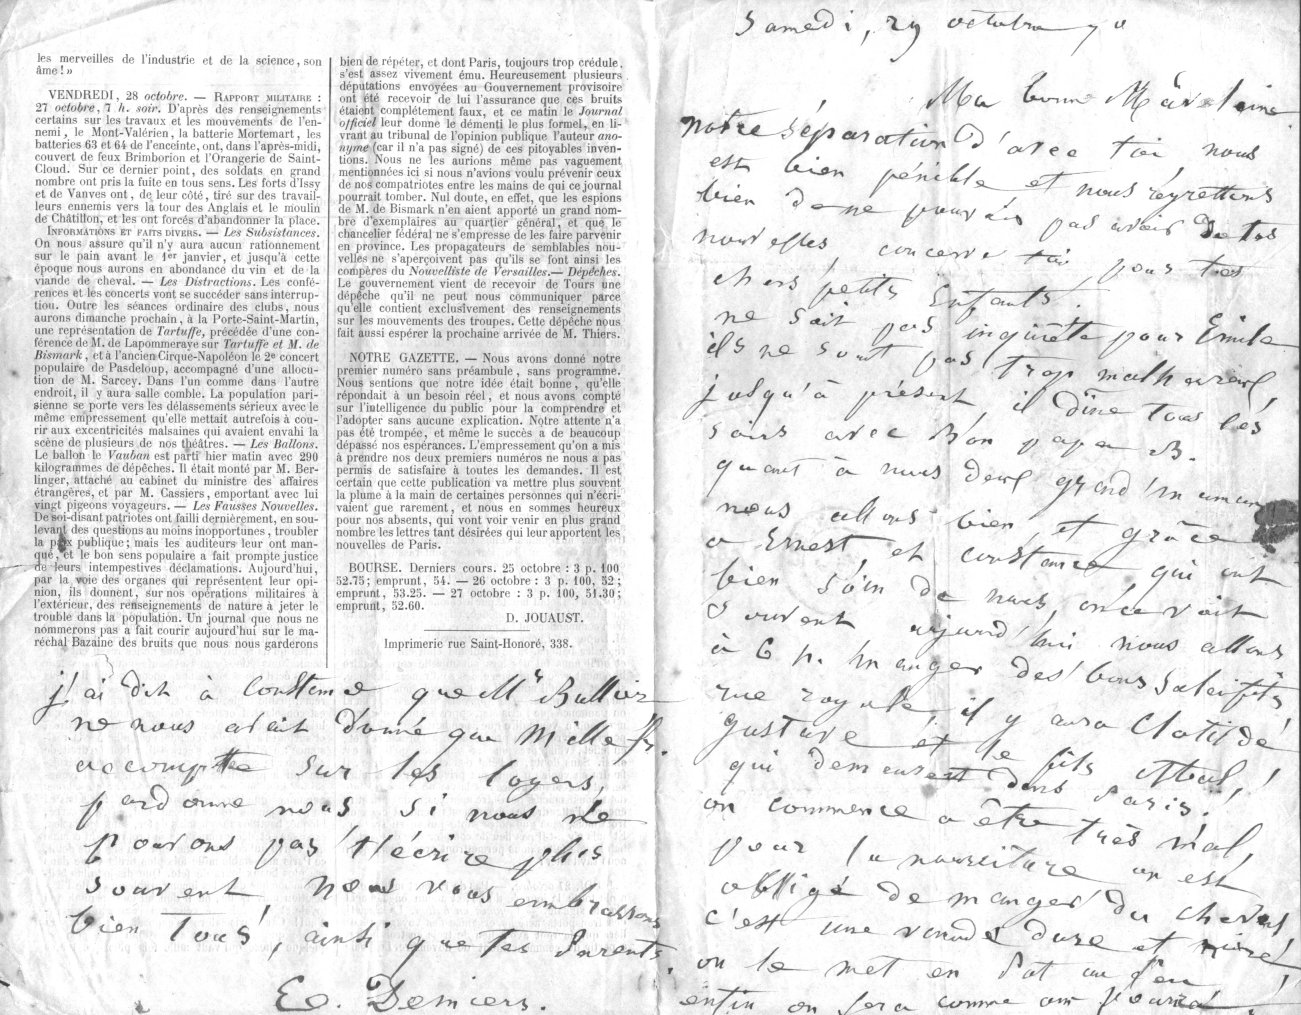 les merveilles de l'industrie et de la science, son
âme ! »
VENDREDI, 28 octobre. — RAPPORT MILITAIRE :
27 octobre, 7 h. soir. D'après des renseignements
certains sur les travaux et les mouvements de l'en-
nemi, le Mont-Valérien, la batterie Mortemart, les
batteries 63 et 64 de l'enceinte, ont, dans l'après-midi,
couvert de feux Brimborion et l'Orangerie de Saint-
Cloud. Sur ce dernier point, des soldats en grand
nombre ont pris la fuite en tous sens. Les forts d'Issy
et de Vanves ont, de leur côté, tiré sur des travail-
leurs ennemis vers la tour des Anglais et le moulin
de Châtillon, et les ont forcés d'abandonner la place.
INFORMATIONS ET FAITS DIVERS. — Les Subsistances.
On nous assure qu'il n'y aura aucun rationnement
sur le pain avant le 1er janvier, et jusqu'à cette
époque nous aurons en abondance du vin et de la
viande de cheval. — Les Distractions. Les confé-
rences et les concerts vont se succéder sans interrup-
tion. Outre les séances ordinaire des clubs, nous
aurons dimanche prochain, à la Porte-Saint-Martin,
une représentation de Tartuffe, précédée d'une con-
férence de M. de Lapommeraye sur Tartuffe et M. de
Bismark, et à l'ancien Cirque-Napoléon le 2e concert
populaire de Pasdeloup, accompagné d'une allocu-
tion de M. Sarcey. Dans l'un comme dans l'autre
endroit, il y aura salle comble. La population pari-
sienne se porte vers les délassements sérieux avec le
même empressement qu'elle mettait autrefois à cou-
rir aux excentricités malsaines qui avaient envahi la
scène de plusieurs de nos théâtres. — Les Ballons.
Le ballon le Vauban est parti hier matin avec 290
kilogrammes de dépêches. Il était monté par M. Ber-
linger, attaché au cabinet du ministre des affaires
étrangères, et par M. Cassiers, emportant avec lui
vingt pigeons voyageurs. — Les Fausses Nouvelles.
De soi-disant patriotes ont failli dernièrement, en sou-
levant des questions au moins inopportunes, troubler
la paix publique; mais les auditeurs leur ont man-
qué, et le bon sens populaire a fait prompte justice
de leurs intempestives déclamations. Aujourd'hui,
par la voie des organes qui représentent leur opi-
nion, ils donnent, sur nos opérations militaires à
l'extérieur, des renseignements de nature à jeter le
trouble dans la population. Un journal que nous ne
nommerons pas a fait courir aujourd'hui sur le ma-
réchal Bazaine des bruits que nous nous garderons
bien de répéter, et dont Paris, toujours trop crédule,
s'est assez vivement ému. Heureusement plusieurs
députations envoyées au Gouvernement provisoire
ont été recevoir de lui l'assurance que ces bruits
étaient complétement faux, et ce matin le Journal
officiel leur donne le démenti le plus formel, en li-
vrant au tribunal de l'opinion publique l'auteur ano-
nyme (car il n'a pas signé) de ces pitoyables inven-
tions. Nous ne les aurions même pas vaguement
mentionnées ici si nous n'avions voulu prévenir ceux
de nos compatriotes entre les mains de qui ce journal
pourrait tomber. Nul doute, en effet, que les espions
de M. de Bismark n'en aient apporté un grand nom-
bre d'exemplaires au quartier général, et que le
chancelier fédéral ne s'empresse de les faire parvenir
en province. Les propagateurs de semblables nou-
velles ne s'aperçoivent pas qu'ils se font ainsi les
compères du Nouvelliste de Versailles.— Dépêches.
Le gouvernement vient de recevoir de Tours une
dépêche qu'il ne peut nous communiquer parce
qu'elle contient exclusivement des renseignements
sur les mouvements des troupes. Cette dépêche nous
fait aussi espérer la prochaine arrivée de M. Thiers.
NOTRE GAZETTE. — Nous avons donné notre
premier numéro sans préambule, sans programme.
Nous sentions que notre idée était bonne, qu'elle
répondait à un besoin réel, et nous avons compté
sur l'intelligence du public pour la comprendre et
l'adopter sans aucune explication. Notre attente n'a
pas été trompée, et même le succès a de beaucoup
dépassé nos espérances. L'empressement qu'on a mis
à prendre nos deux premiers numéros ne nous a pas
permis de satisfaire à toutes les demandes. Il est
certain que cette publication va mettre plus souvent
la plume à la main de certaines personnes qui n'écri-
vaient que rarement, et nous en sommes heureux
pour nos absents, qui vont voir venir en plus grand
nombre les lettres tant désirées qui leur apportent les
nouvelles de Paris.
BOURSE. Derniers cours. 25 octobre : 3 p. 100
52.75; emprunt, 54. — 26 octobre : 3 p. 100, 52;
emprunt, 53.25. — 27 octobre : 3 p. 100, 51.30;
emprunt, 52.60.
D. JOUAUST.
Imprimerie rue Saint-Honoré, 338.
j'ai dit à Constance que Mr Bullier
ne nous avait donné que Mille fr.
accompte sur les loyers,
pardonne nous, si nous ne
pouvons pas t'écrire plus
souvent nous vous embrassons
bien tous, ainsi que tes Parents.
Ed. Demiers.
Samedi, 29 octobre 70
Ma bonne
notre séparation d'avec toi nous
est bien pénible et nous regrettons
bien de ne pouvoir pas avoir de tes
nouvelles conserve toi pour tes
chers petits Enfants.
ne sait pas inquiète pour Emile
ils ne sont pas trop malheureux
jusqu'à présent il dîne tous les
soirs avec Bon papa B.
quant à nous deux grand'maman
nous allons bien et grâce
a Ernest, et Constance qui ont
bien soin de nous, on ce voit
souvent aujourd'hui nous allons
à 6 h. manger des bons salsifis
rue royale, il y aura Clotilde
Gustave et le fils
qui demeurent dans Paris.
on commence a être très mal,
pour la nourriture on est
obligé de manger du cheval
c'est une viande dure et
on le met en Pot au feu
enfin on fera comme on pourra!